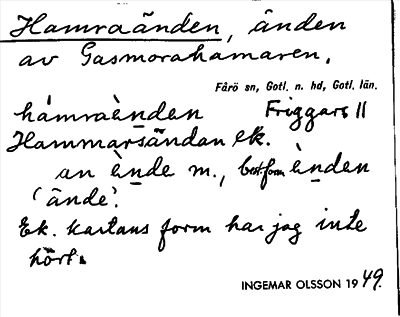 Hamraänden, änden
av Gasmorahamaren.
Fårö sn, Gotl. n. hd, Gotl. län.
hámraènden Friggars 11
Hammarsändan ek.
an ènde m., best. form ènden
'ände'.
Ek. kartans form har jag inte
hört.
INGEMAR OLSSON 1949.